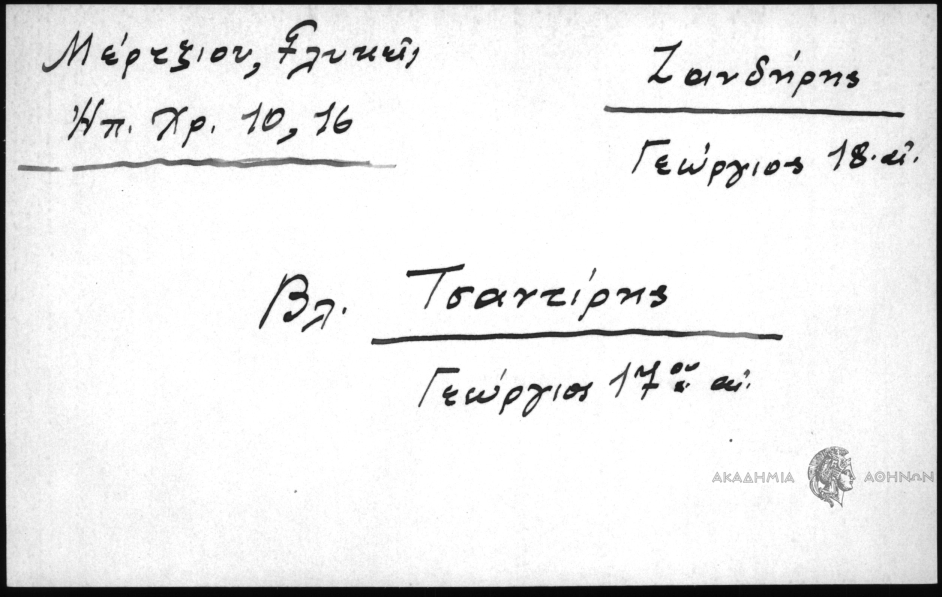 Μέρτζιου, Γλυκεῖς
Ἠπ. Χρ. 10, 16
Ζανδήρης
Γεώργιος 18. αἰ.
Βλ. Τσαντίρης
Γεώργιος 17ου αἰ.
ΑΚΑΔΗΜΙΑ ΑΘΗΝΩΝ